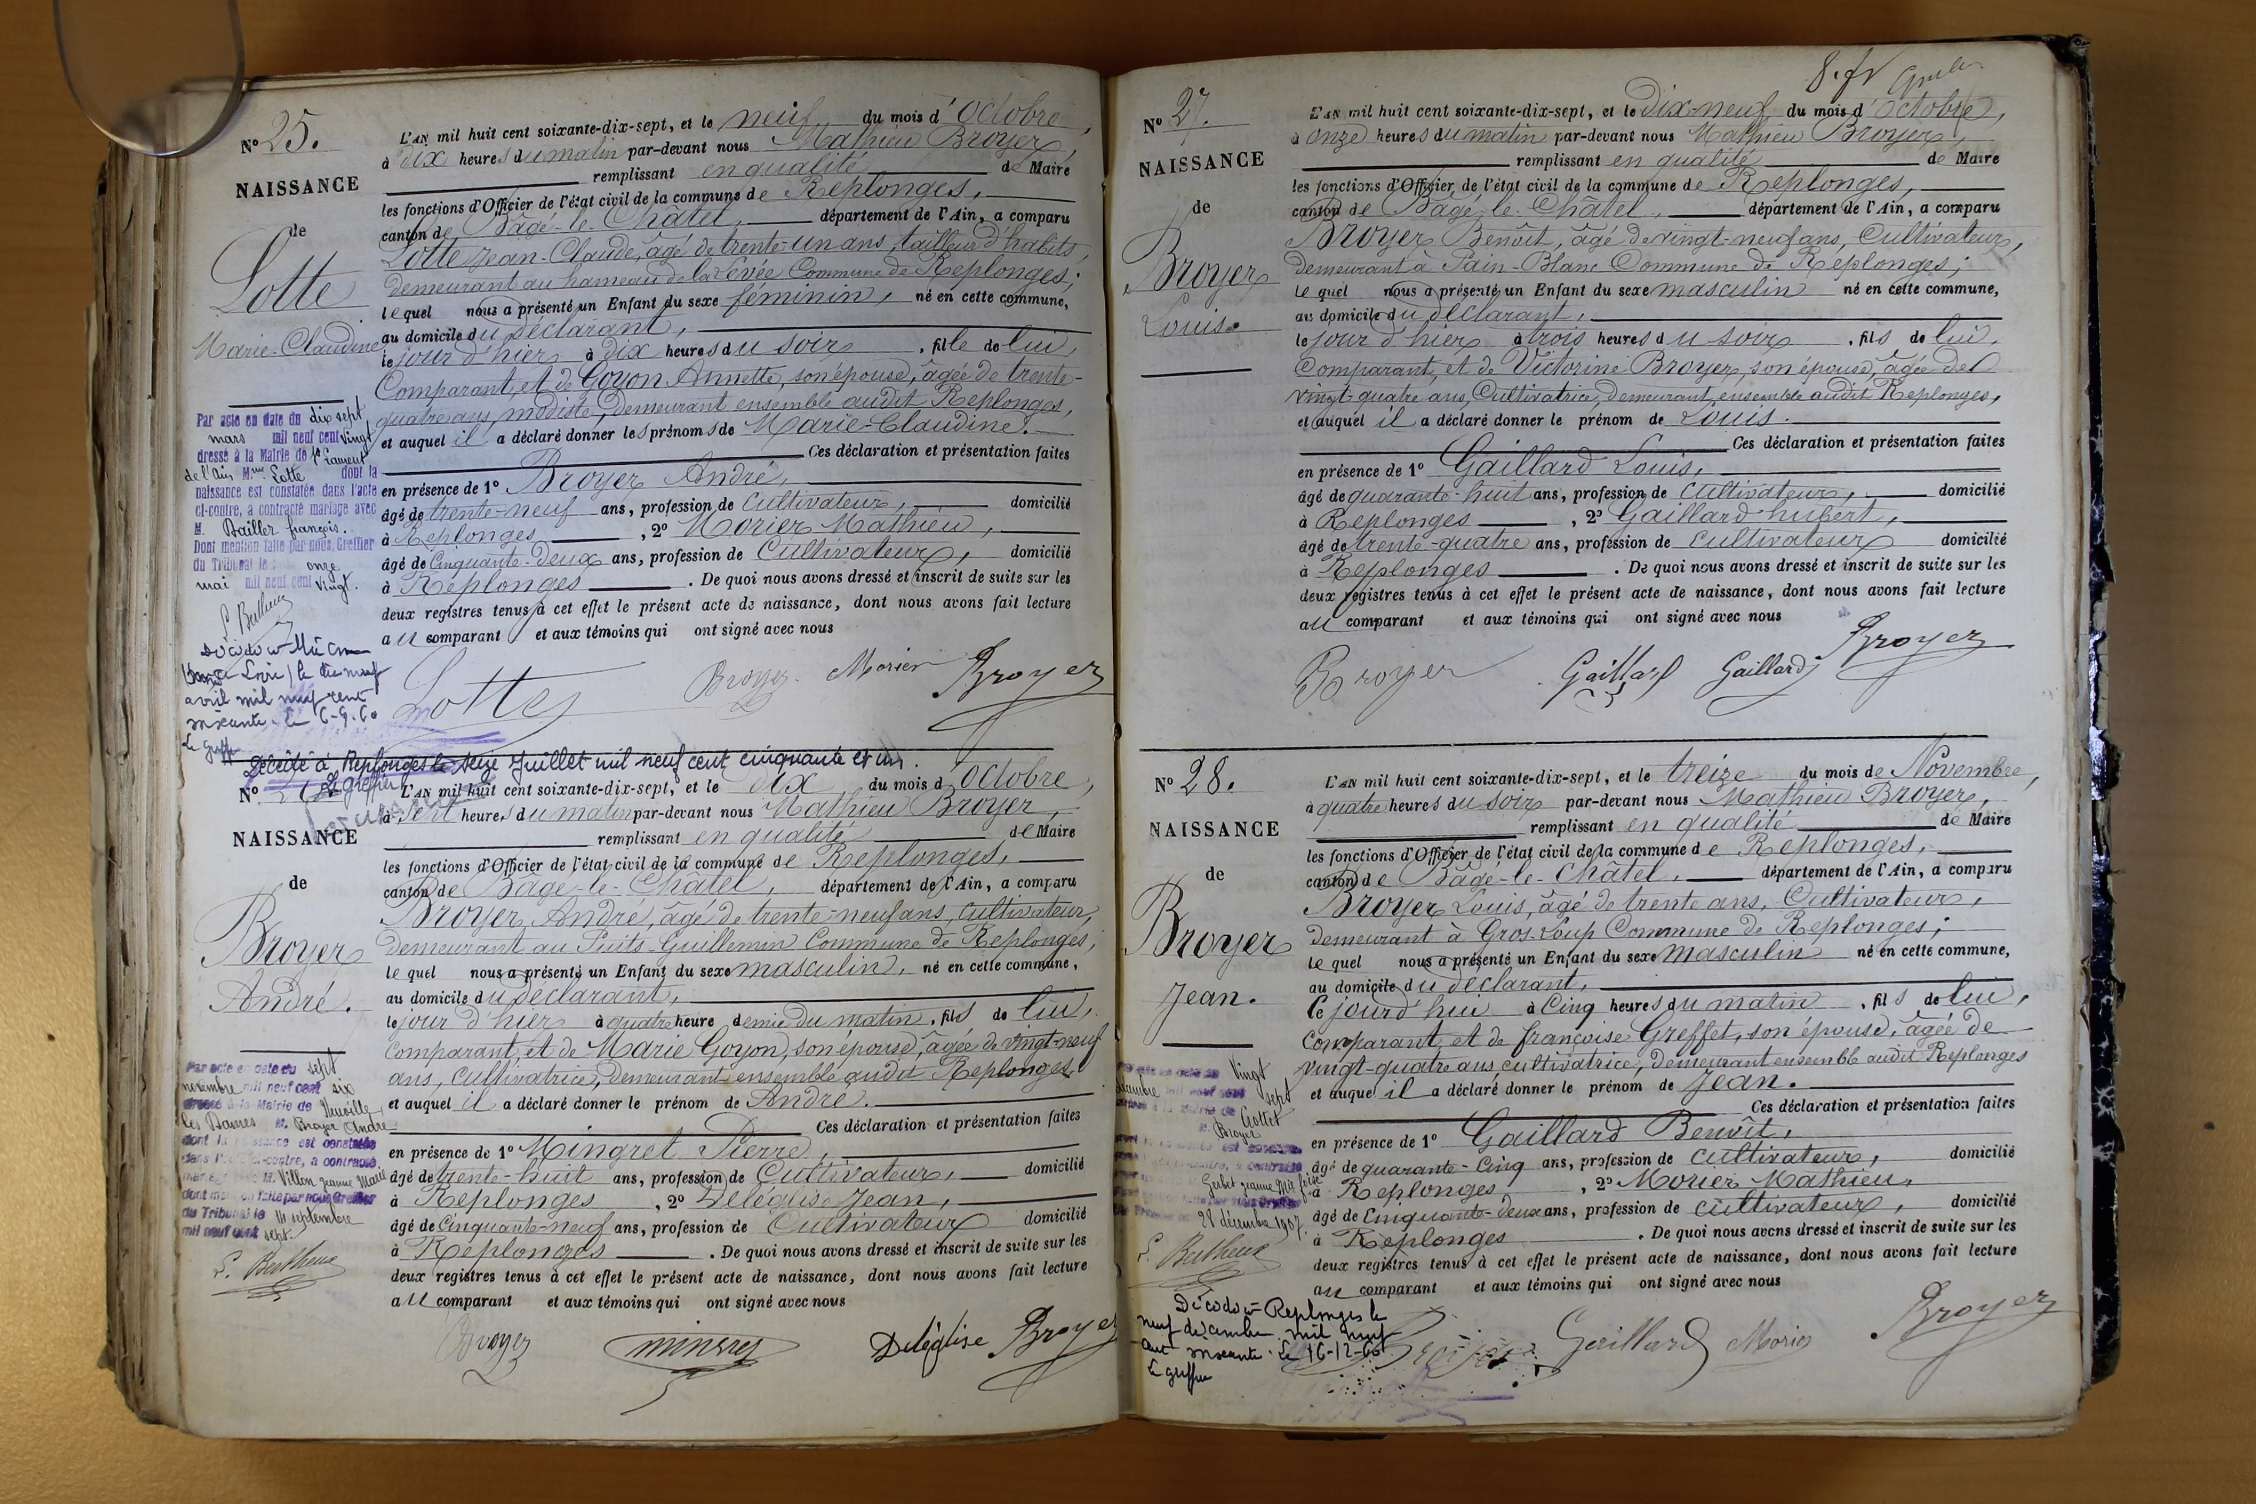 No 25.
NAISSANCE
de
Lotte
Marie-Claudine
L'AN mil huit cent soixante-dix-sept, et le neuf du mois d'octobre,
à dix heures du matin par-devant nous Mathieu Broyer,
remplissant en qualité de Maire
les fonctions d'Officier de l'état civil de la commune de Replonges,
canton de Bâgé-le-Châtel, département de l'Ain, a comparu
Lotte Jean-Claude, âgé de trente-un ans, tailleur d'habits,
demeurant au hameau de la Levée Commune de Replonges;
lequel nous a présenté un Enfant du sexe féminin, né en cette commune,
au domicile du déclarant,
le jour d'hier à dix heures du soir, fille de lui,
Comparant, et de Goyon Annette, son épouse, âgée de trente-
quatre ans, modiste, demeurant ensemble audit Replonges,
et auquel il a déclaré donner les prénoms de Marie-Claudine.
Ces déclaration et présentation faites
en présence de 1° Broyer André,
âgé de trente-neuf ans, profession de Cultivateur, domicilié
à Replonges, 2° Morier Mathieu,
âgé de Cinquante-deux ans, profession de Cultivateur, domicilié
à Replonges. De quoi nous avons dressé et inscrit de suite sur les
deux registres tenus à cet effet le présent acte de naissance, dont nous avons fait lecture
au comparant et aux témoins qui ont signé avec nous
Lotte Broyer Morier Broyer
Par acte en date du dix sept
mars mil neuf cent vingt
dressé à la Mairie de St Laurent
de l'Ain, Mme Lotte dont la
naissance est constatée dans l'acte
ci-contre, a contracté mariage avec
M. Bailler françois.
Dont mention faite par nous, Greffier
du Tribunal le onze
mai mil neuf cent vingt.
avril mil neuf cent
soixante. Le 6-9-60
Le Greffier
Décédé à Replonges le seize Juillet mil neuf cent cinquante et un.
Le greffier
No
NAISSANCE
de
Broyer
André.
L'AN mil huit cent soixante-dix-sept, et le dix du mois d'octobre,
à sept heures du matin par-devant nous Mathieu Broyer,
remplissant en qualité de Maire
les fonctions d'Officier de l'état civil de la commune de Replonges,
canton de Bâgé-le-Châtel, département de l'Ain, a comparu
Broyer André, âgé de trente-neuf ans, cultivateur,
demeurant au Puits-Guillemin Commune de Replonges;
lequel nous a présenté un Enfant du sexe masculin, né en cette commune,
au domicile du déclarant,
le jour d'hier à quatre heure demie du matin, fils de lui,
comparant, et de Marie Goyon, son épouse, âgée de vingt-neuf
ans, cultivatrice, demeurant ensemble audit Replonges
et auquel il a déclaré donner le prénom de André.
Ces déclaration et présentation faites
en présence de 1° Mingret Pierre,
âgé de trente-huit ans, profession de Cultivateur, domicilié
à Replonges, 2° Deléglise Jean,
âgé de Cinquante-neuf ans, profession de Cultivateur domicilié
à Replonges. De quoi nous avons dressé et inscrit de suite sur les
deux registres tenus à cet effet le présent acte de naissance, dont nous avons fait lecture
au comparant et aux témoins qui ont signé avec nous
Broyer Deléglise Broyer
Par acte en date du sept
novembre mil neuf cent six
dressé à la Mairie de Neuville
les Dames M. Broyer André
dont la naissance est constatée
dans l'acte ci-contre, a contracté
mariage avec M. Villon Jeanne Marie
dont mention faite par nous Greffier
du Tribunal le 11 septembre
mil neuf cent sept.
No 27.
NAISSANCE
de
Broyer
Louis.
L'AN mil huit cent soixante-dix-sept, et le dix-neuf du mois d'octobre,
à onze heures du matin par-devant nous Mathieu Broyer,
remplissant en qualité de Maire
les fonctions d'Officier de l'état civil de la commune de Replonges,
canton de Bâgé-le-Châtel, département de l'Ain, a comparu
Broyer Benoît, âgé de vingt-neuf ans, Cultivateur,
demeurant à Pain-Blanc Commune de Replonges;
lequel nous a présenté un Enfant du sexe masculin né en cette commune,
au domicile du déclarant,
le jour d'hier à trois heures du soir, fils de lui,
Comparant, et de Victorine Broyer, son épouse, âgée de
vingt-quatre ans, Cultivatrice, demeurant ensemble audit Replonges,
et auquel il a déclaré donner le prénom de Louis.
Ces déclaration et présentation faites
en présence de 1° Gaillard Louis,
âgé de quarante-huit ans, profession de cultivateur, domicilié
à Replonges, 2° Gaillard hubert,
âgé de trente-quatre ans, profession de cultivateur domicilié
à Replonges. De quoi nous avons dressé et inscrit de suite sur les
deux registres tenus à cet effet le présent acte de naissance, dont nous avons fait lecture
au comparant et aux témoins qui ont signé avec nous
Broyer Gaillard Gaillard Broyer
No 28.
NAISSANCE
de
Broyer
Jean.
L'AN mil huit cent soixante-dix-sept, et le treize du mois de Novembre,
à quatre heures du soir par-devant nous Mathieu Broyer,
remplissant en qualité de Maire
les fonctions d'Officier de l'état civil de la commune de Replonges,
canton de Bâgé-le-Châtel, département de l'Ain, a comparu
Broyer Louis, âgé de trente ans, Cultivateur,
demeurant à Gros-Loup Commune de Replonges;
lequel nous a présenté un Enfant du sexe masculin né en cette commune,
au domicile du déclarant,
le jourd'hui à Cinq heures du matin, fils de lui,
Comparant, et de françoise Greffet, son épouse, âgée de
vingt-quatre ans cultivatrice, demeurant ensemble audit Replonges
et auquel il a déclaré donner le prénom de Jean.
Ces déclaration et présentation faites
en présence de 1° Gaillard Benoît,
âgé de quarante-Cinq ans, profession de cultivateur, domicilié
à Replonges, 2° Morier Mathieu,
âgé de Cinquante-deux ans, profession de cultivateur, domicilié
à Replonges. De quoi nous avons dressé et inscrit de suite sur les
deux registres tenus à cet effet le présent acte de naissance, dont nous avons fait lecture
au comparant et aux témoins qui ont signé avec nous
Gaillard Morier Broyer
Vingt
sept
Crottet
Broyer
28 décembre 1907.
Décédé à Replonges le
neuf décembre mil neuf
cent soixante. Le 16-12-60
Le greffier